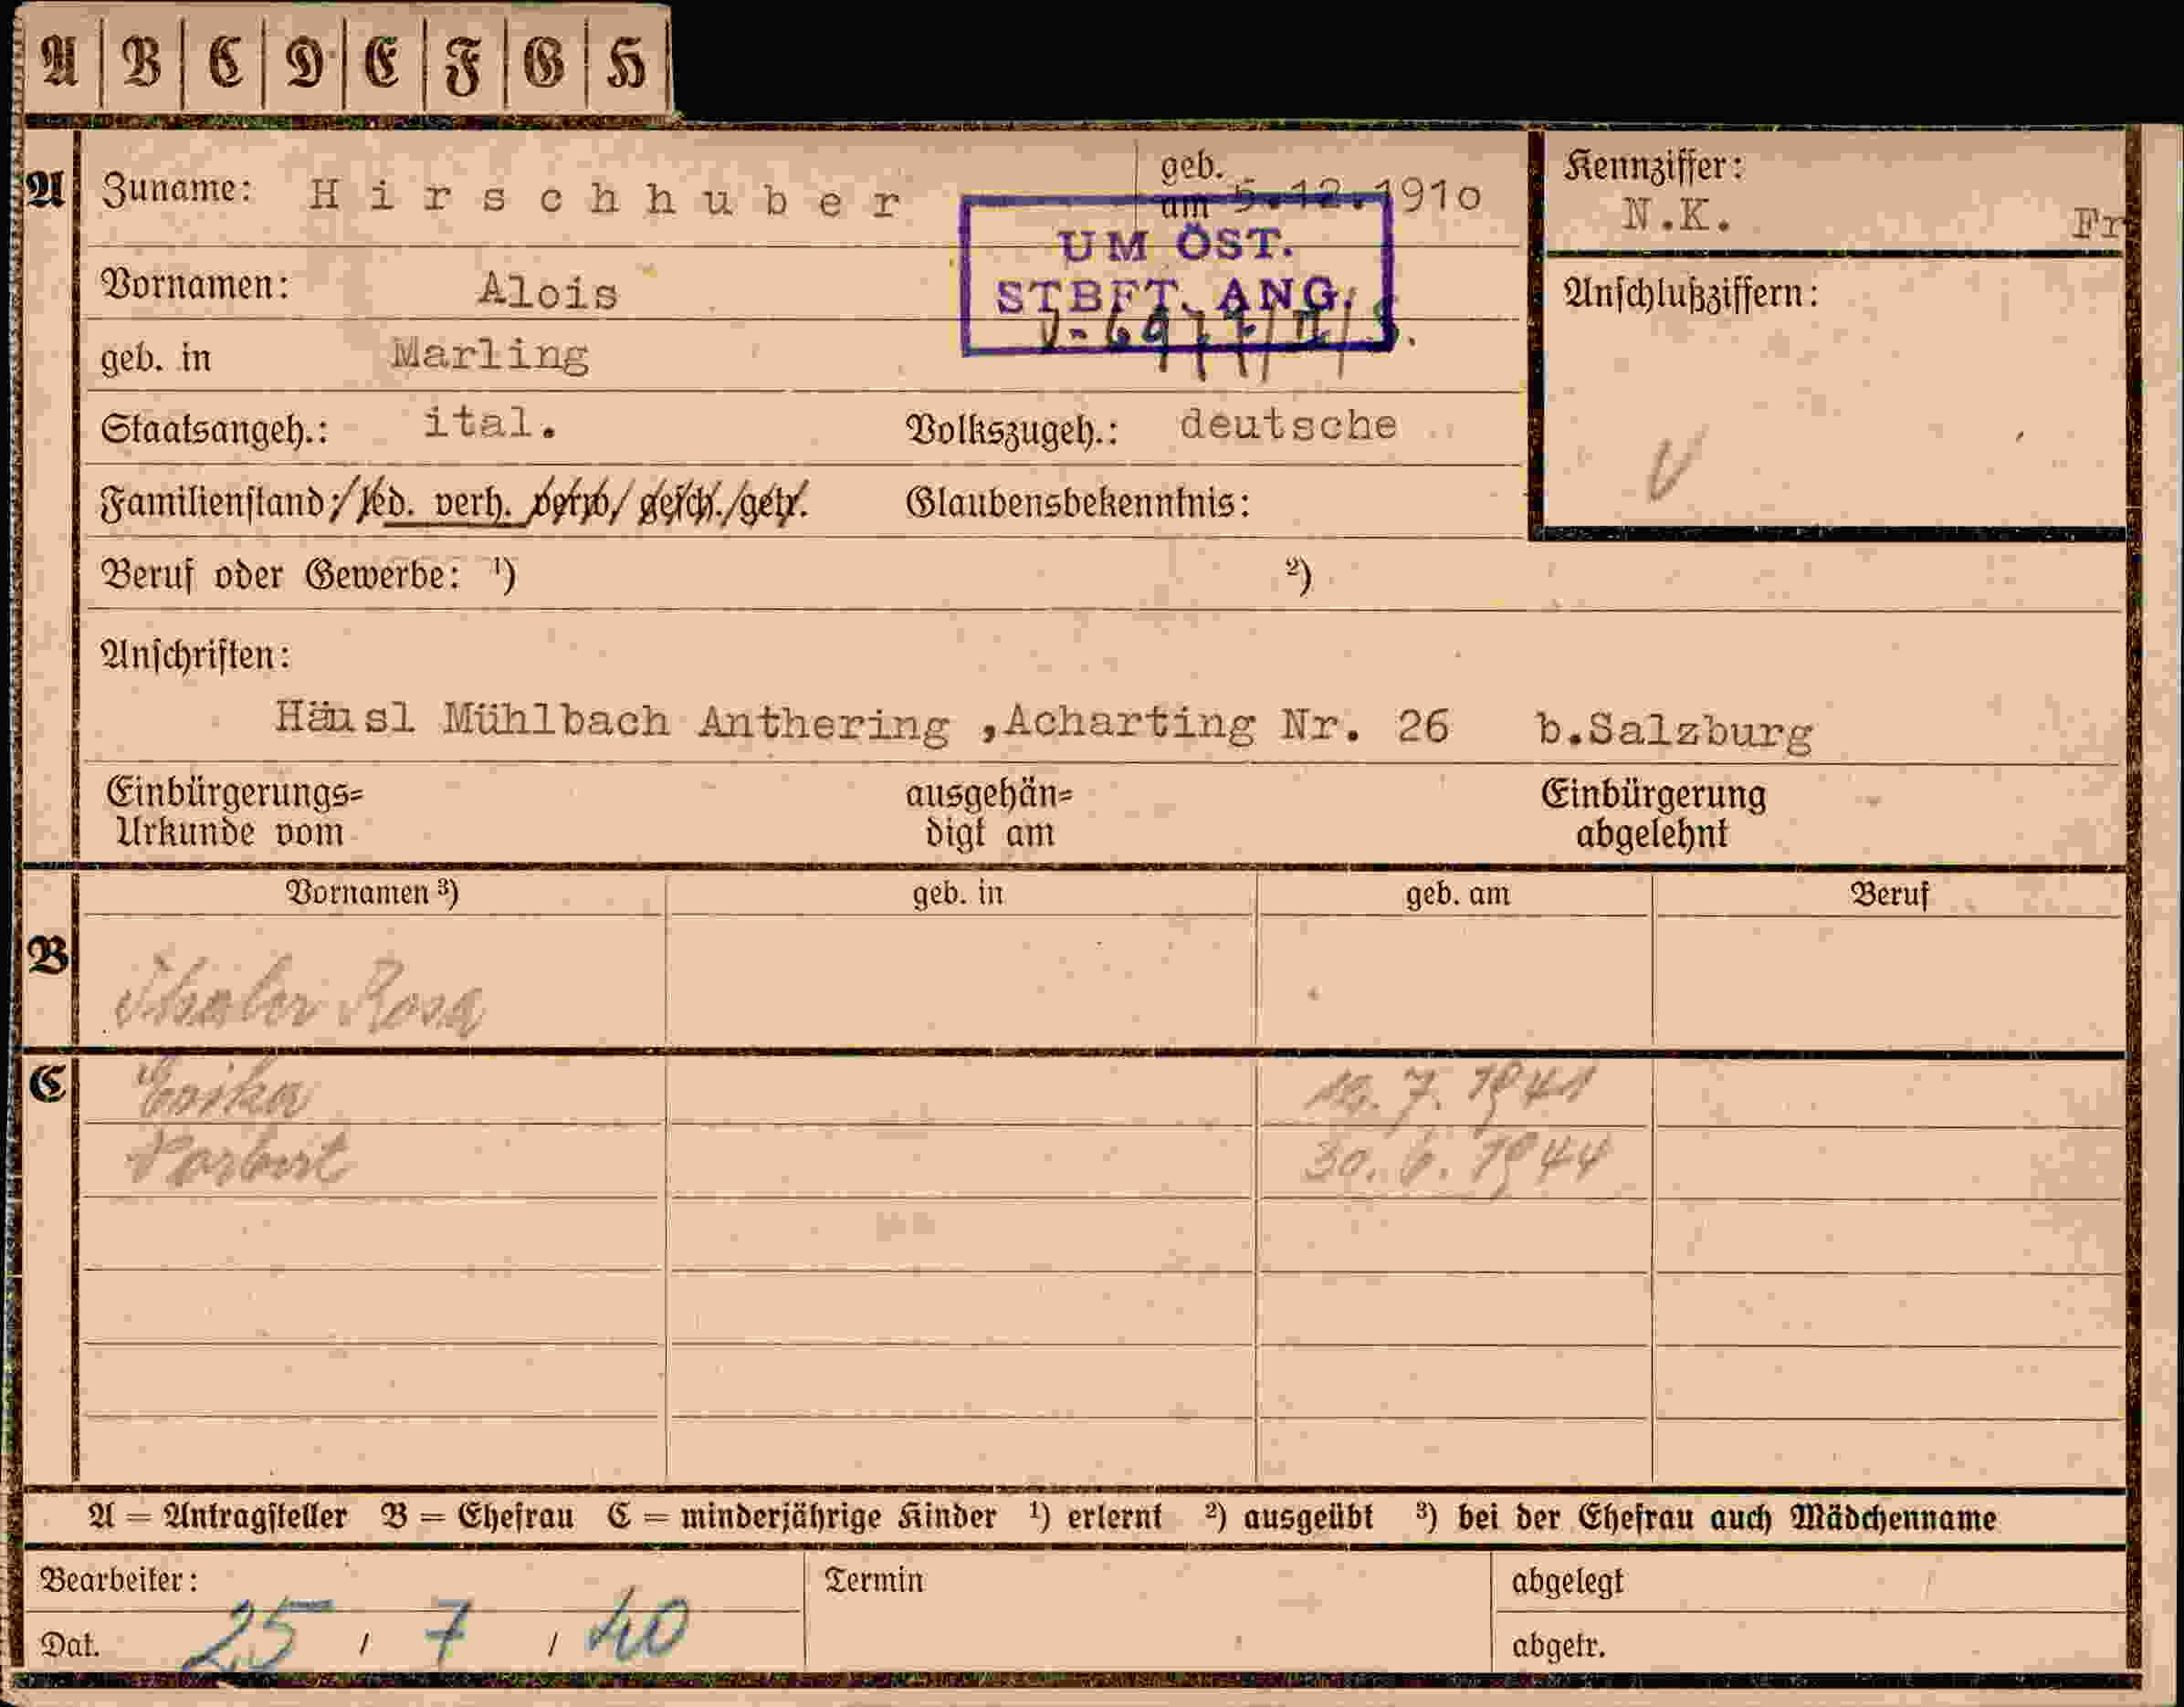 A B C D E F G H
A Zuname: Hirschhuber geb. am 5.12.1910 Kennziffer: N.K. Fr
UM ÖST. STBFT. ANG.
Vornamen: Alois Anschlußziffern:
geb. in Marling
Staatsangeh.: ital. Volkszugeh.: deutsche
Familienstand:/led. verh. verw/ gesch./getr. Glaubensbekenntnis:
Beruf oder Gewerbe: ¹) ²)
Anschriften:
Häusl Mühlbach Anthering ,Acharting Nr. 26 b.Salzburg
Einbürgerungs= ausgehän= Einbürgerung
Urkunde vom digt am abgelehnt
Vornamen ³) geb. in geb. am Beruf
B Thaler Rosa
C Erika 7. 1941
Norbert 30. 6. 1944
A = Antragsteller B = Ehefrau C = minderjährige Kinder ¹) erlernt ²) ausgeübt ³) bei der Ehefrau auch Mädchenname
Bearbeiter: Termin abgelegt
Dat. 25 / 7 / 40 abgetr.